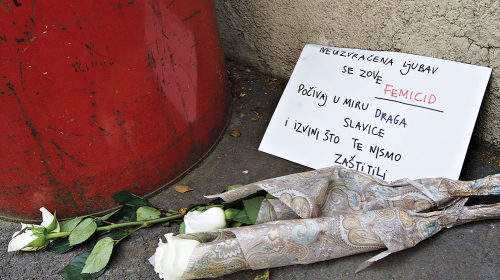 NEUZVRAĆENA LJUBAV
SE ZOVE
FEMICID
POČIVAJ U MIRU DRAGA
SLAVICE
I IZVINI ŠTO TE NISMO
ZAŠTITILI